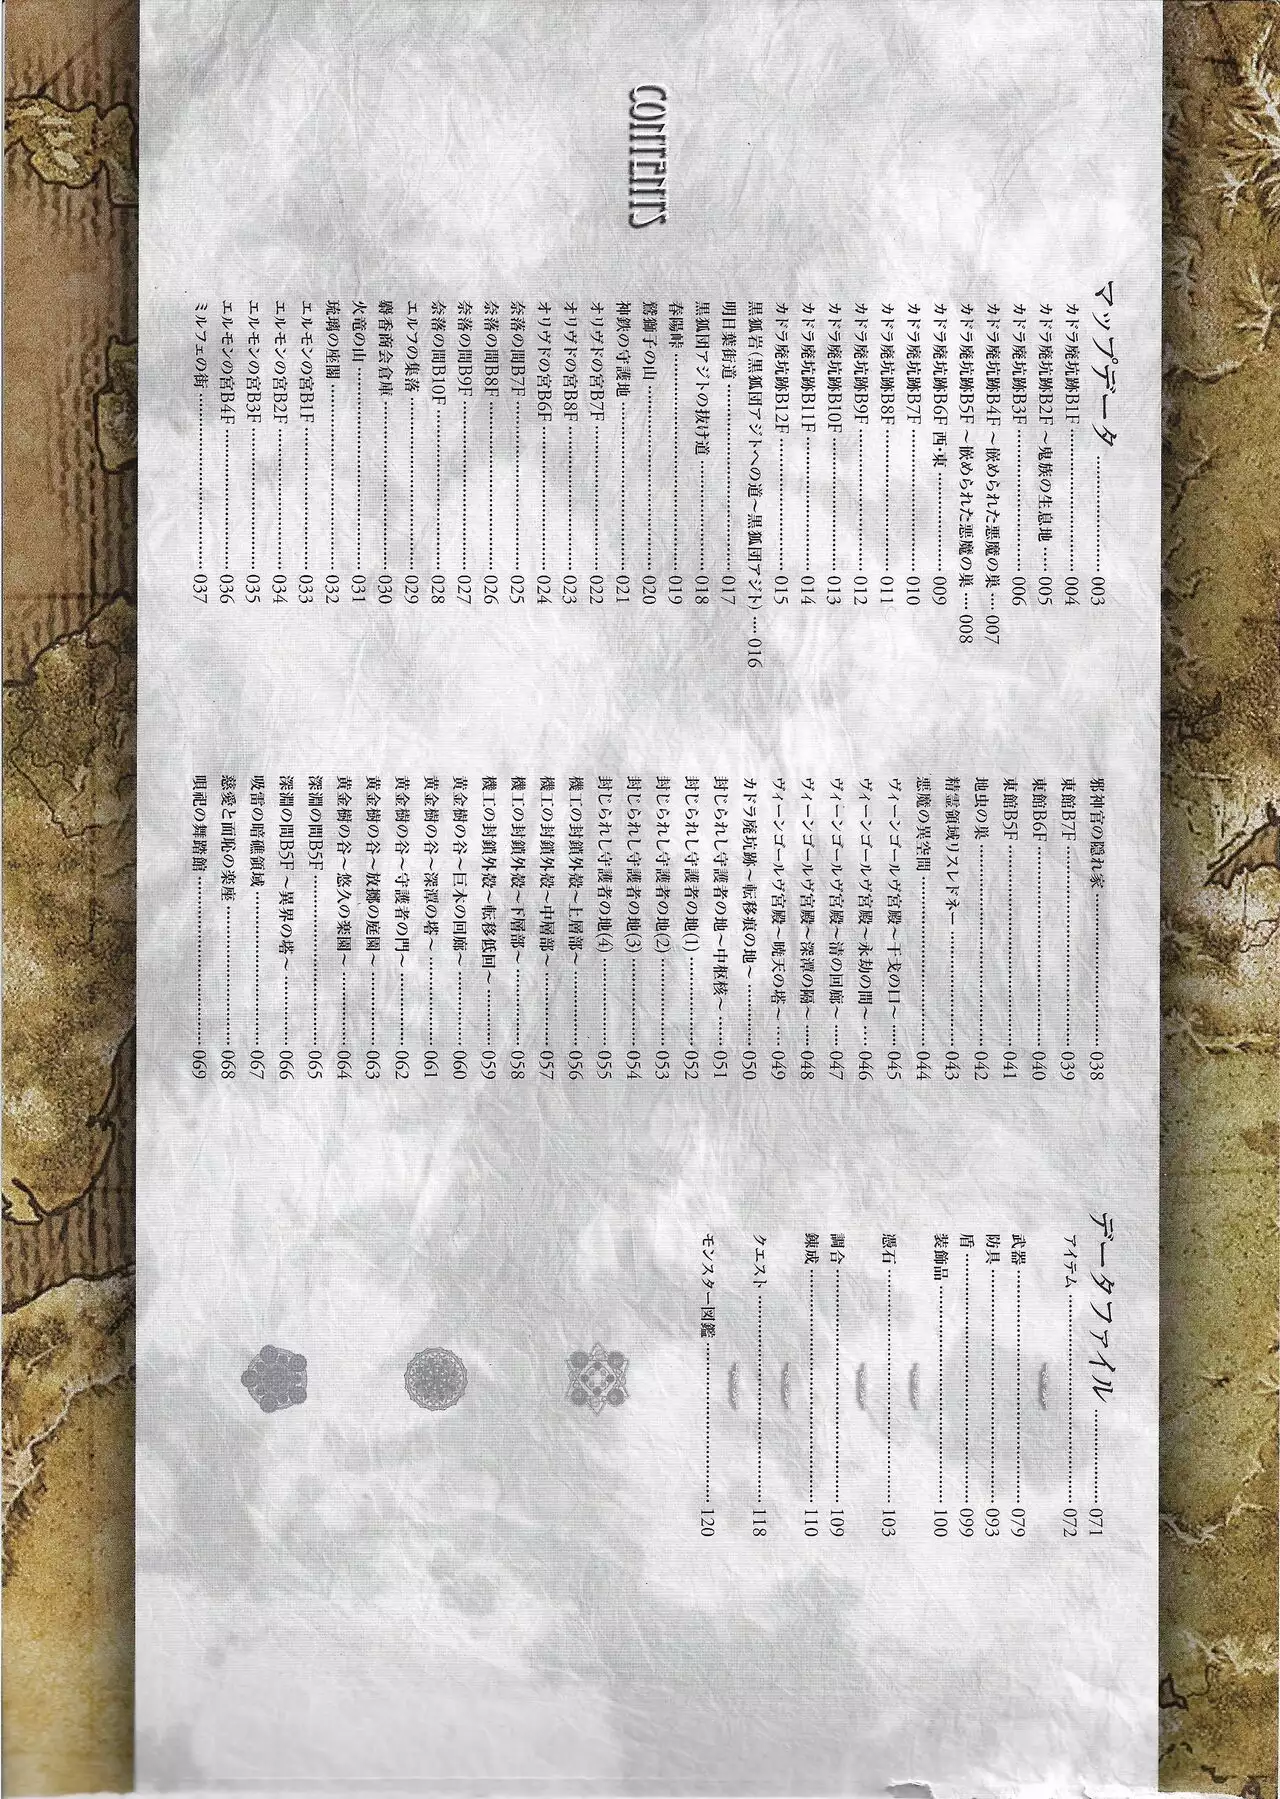 CONTENTS
マップデータ ……… 003
カドラ廃坑跡B1F ……… 004
カドラ廃坑跡B2F ～鬼族の生息地 ……… 005
カドラ廃坑跡B3F ……… 006
カドラ廃坑跡B4F ～嵌められた悪魔の巣 ……… 007
カドラ廃坑跡B5F ～嵌められた悪魔の巣 ……… 008
カドラ廃坑跡B6F 西・東 ……… 009
カドラ廃坑跡B7F ……… 010
カドラ廃坑跡B8F ……… 011
カドラ廃坑跡B9F ……… 012
カドラ廃坑跡B10F ……… 013
カドラ廃坑跡B11F ……… 014
カドラ廃坑跡B12F ……… 015
黒狐岩(黒狐団アジトへの道～黒狐団アジト) ……… 016
明日葉街道 ……… 017
黒狐団アジトの抜け道 ……… 018
春陽峠 ……… 019
鷲獅子の山 ……… 020
神鉄の守護地 ……… 021
オリヴドの宮B7F ……… 022
オリヴドの宮B8F ……… 023
オリヴドの宮B6F ……… 024
奈落の間B7F ……… 025
奈落の間B8F ……… 026
奈落の間B9F ……… 027
奈落の間B10F ……… 028
エルフの集落 ……… 029
麝香商会倉庫 ……… 030
火竜の山 ……… 031
琉璃の座閣 ……… 032
エルモンの宮B1F ……… 033
エルモンの宮B2F ……… 034
エルモンの宮B3F ……… 035
エルモンの宮B4F ……… 036
ミルフェの街 ……… 037
邪神官の隠れ家 ……… 038
東館B7F ……… 039
東館B6F ……… 040
東館B5F ……… 041
地虫の巣 ……… 042
精霊領域リスレドネー ……… 043
悪魔の異空間 ……… 044
ヴィーンゴールヴ宮殿～干戈の口～ ……… 045
ヴィーンゴールヴ宮殿～永劫の間～ ……… 046
ヴィーンゴールヴ宮殿～清の回廊～ ……… 047
ヴィーンゴールヴ宮殿～深潭の隔～ ……… 048
ヴィーンゴールヴ宮殿～暁天の塔～ ……… 049
カドラ廃坑跡～転移痕の地～ ……… 050
封じられし守護者の地～中枢核～ ……… 051
封じられし守護者の地(1) ……… 052
封じられし守護者の地(2) ……… 053
封じられし守護者の地(3) ……… 054
封じられし守護者の地(4) ……… 055
機工の封鎖外殻～上層部～ ……… 056
機工の封鎖外殻～中層部～ ……… 057
機工の封鎖外殻～下層部～ ……… 058
機工の封鎖外殻～転移低回～ ……… 059
黄金樹の谷～巨木の回廊～ ……… 060
黄金樹の谷～深潭の塔～ ……… 061
黄金樹の谷～守護者の門～ ……… 062
黄金樹の谷～放擲の庭園～ ……… 063
黄金樹の谷～悠久の楽園～ ……… 064
深淵の間B5F ……… 065
深淵の間B5F ～異界の塔～ ……… 066
吸雷の暗礁領域 ……… 067
慈愛と面恥の楽座 ……… 068
唄祀の舞踏館 ……… 069
データファイル ……… 071
アイテム ……… 072
武器 ……… 079
防具 ……… 093
盾 ……… 099
装飾品 ……… 100
憑石 ……… 103
調合 ……… 109
錬成 ……… 110
クエスト ……… 118
モンスター図鑑 ……… 120